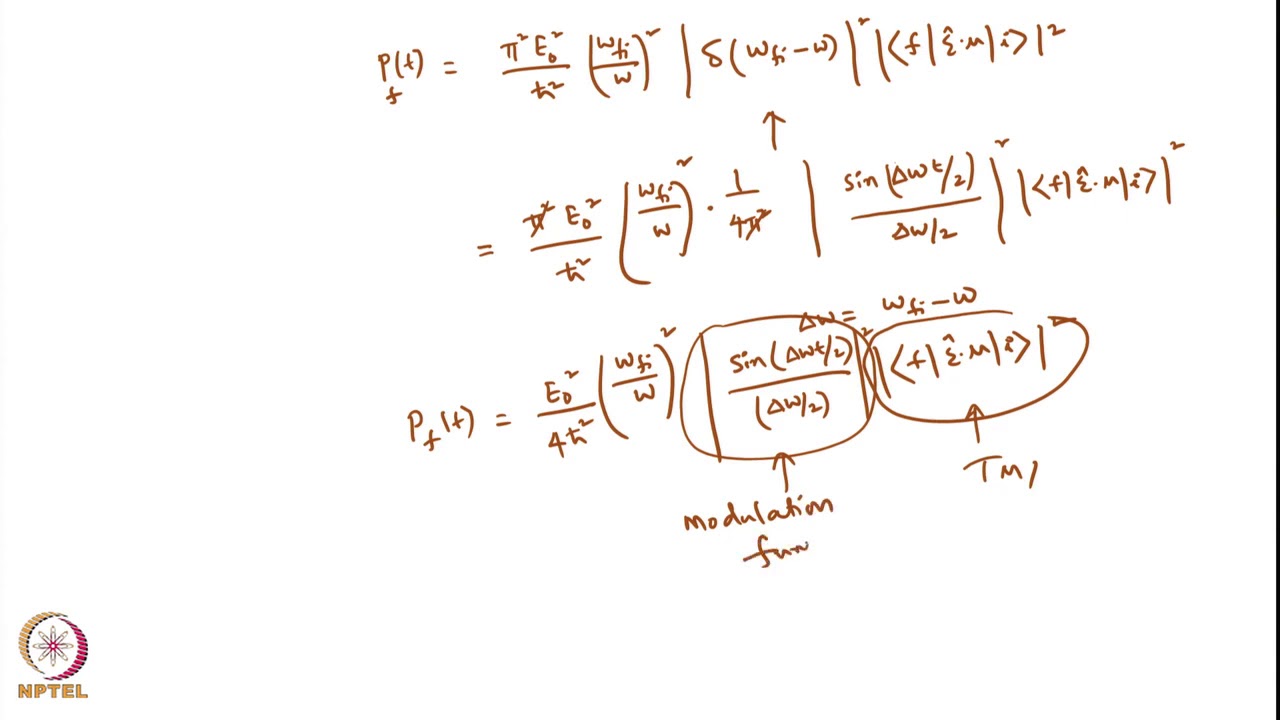 P_f(t) = π² E₀² / ħ² (ω_fi / ω)² | δ(ω_fi − ω) |² |<f| ε̂·μ |i>|²
↑
= π² E₀² / ħ² (ω_fi / ω)² · 1 / 4π² | sin(Δωt/2) / Δω/2 |² |<f| ε̂·μ |i>|²
Δω = ω_fi − ω
P_f(t) = E₀² / 4ħ² (ω_fi / ω)² | sin(Δωt/2) / (Δω/2) |² |<f| ε̂·μ |i>|²
↑ ↑
modulation TMI
fun
NPTEL